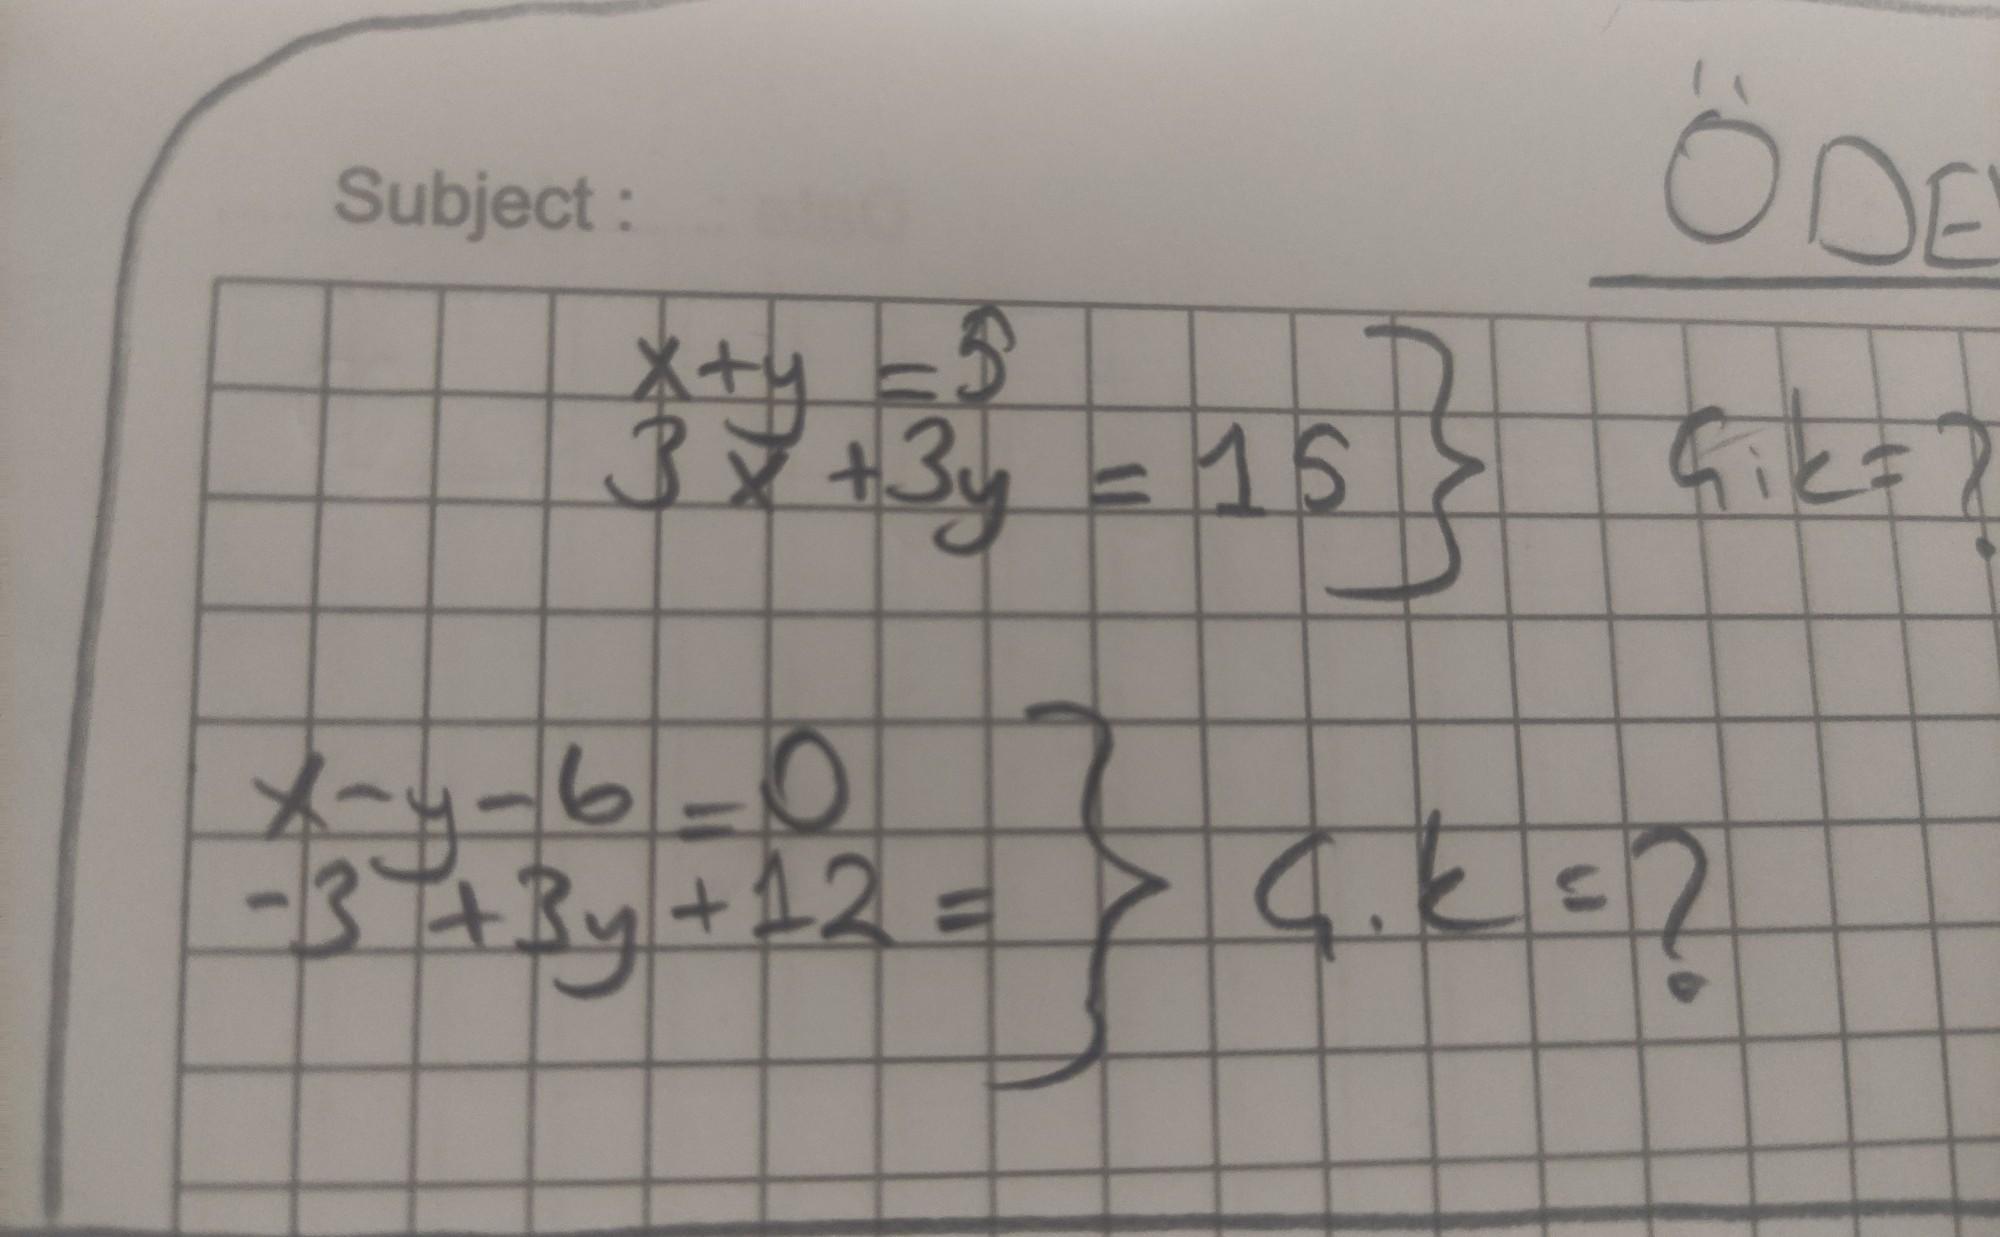 Subject :
ÖDEV
x+y = 5
3x +3y = 15 } Ç.k= ?
x-y-6=0
-3 +3y+12 = } Ç.k =?